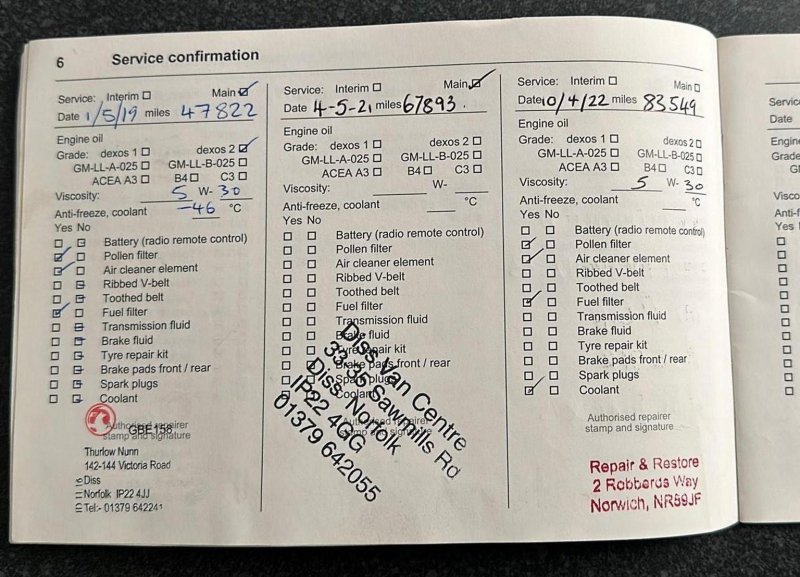 6 Service confirmation
Service: Interim Main
Date 1/5/19 miles 47822
Engine oil
Grade: dexos 1 dexos 2
GM-LL-A-025 GM-LL-B-025
ACEA A3 B4 C3
Viscosity: 5 W- 30
Anti-freeze, coolant -46 °C
Yes No
Battery (radio remote control)
Pollen filter
Air cleaner element
Ribbed V-belt
Toothed belt
Fuel filter
Transmission fluid
Brake fluid
Tyre repair kit
Brake pads front / rear
Spark plugs
Coolant
Authorised repairer
stamp and signature
GBE158
Thurlow Nunn
142-144 Victoria Road
Diss
Norfolk IP22 4JJ
Tel:- 01379 642241
Service: Interim Main
Date 4-5-21 miles 67893.
Engine oil
Grade: dexos 1 dexos 2
GM-LL-A-025 GM-LL-B-025
ACEA A3 B4 C3
Viscosity: W-
Anti-freeze, coolant °C
Yes No
Battery (radio remote control)
Pollen filter
Air cleaner element
Ribbed V-belt
Toothed belt
Fuel filter
Transmission fluid
Brake fluid
Tyre repair kit
Brake pads front / rear
Spark plugs
Coolant
Authorised repairer
stamp and signature
Diss Van Centre
33-35 Sawmills Rd
Diss. Norfolk
IP22 4GG
01379 642055
Service: Interim Main
Date 10/4/22 miles 83549
Engine oil
Grade: dexos 1 dexos 2
GM-LL-A-025 GM-LL-B-025
ACEA A3 B4 C3
Viscosity: 5 W- 30
Anti-freeze, coolant °C
Yes No
Battery (radio remote control)
Pollen filter
Air cleaner element
Ribbed V-belt
Toothed belt
Fuel filter
Transmission fluid
Brake fluid
Tyre repair kit
Brake pads front / rear
Spark plugs
Coolant
Authorised repairer
stamp and signature
Repair & Restore
2 Robberds Way
Norwich, NR59JF
Date
Grade:
Yes